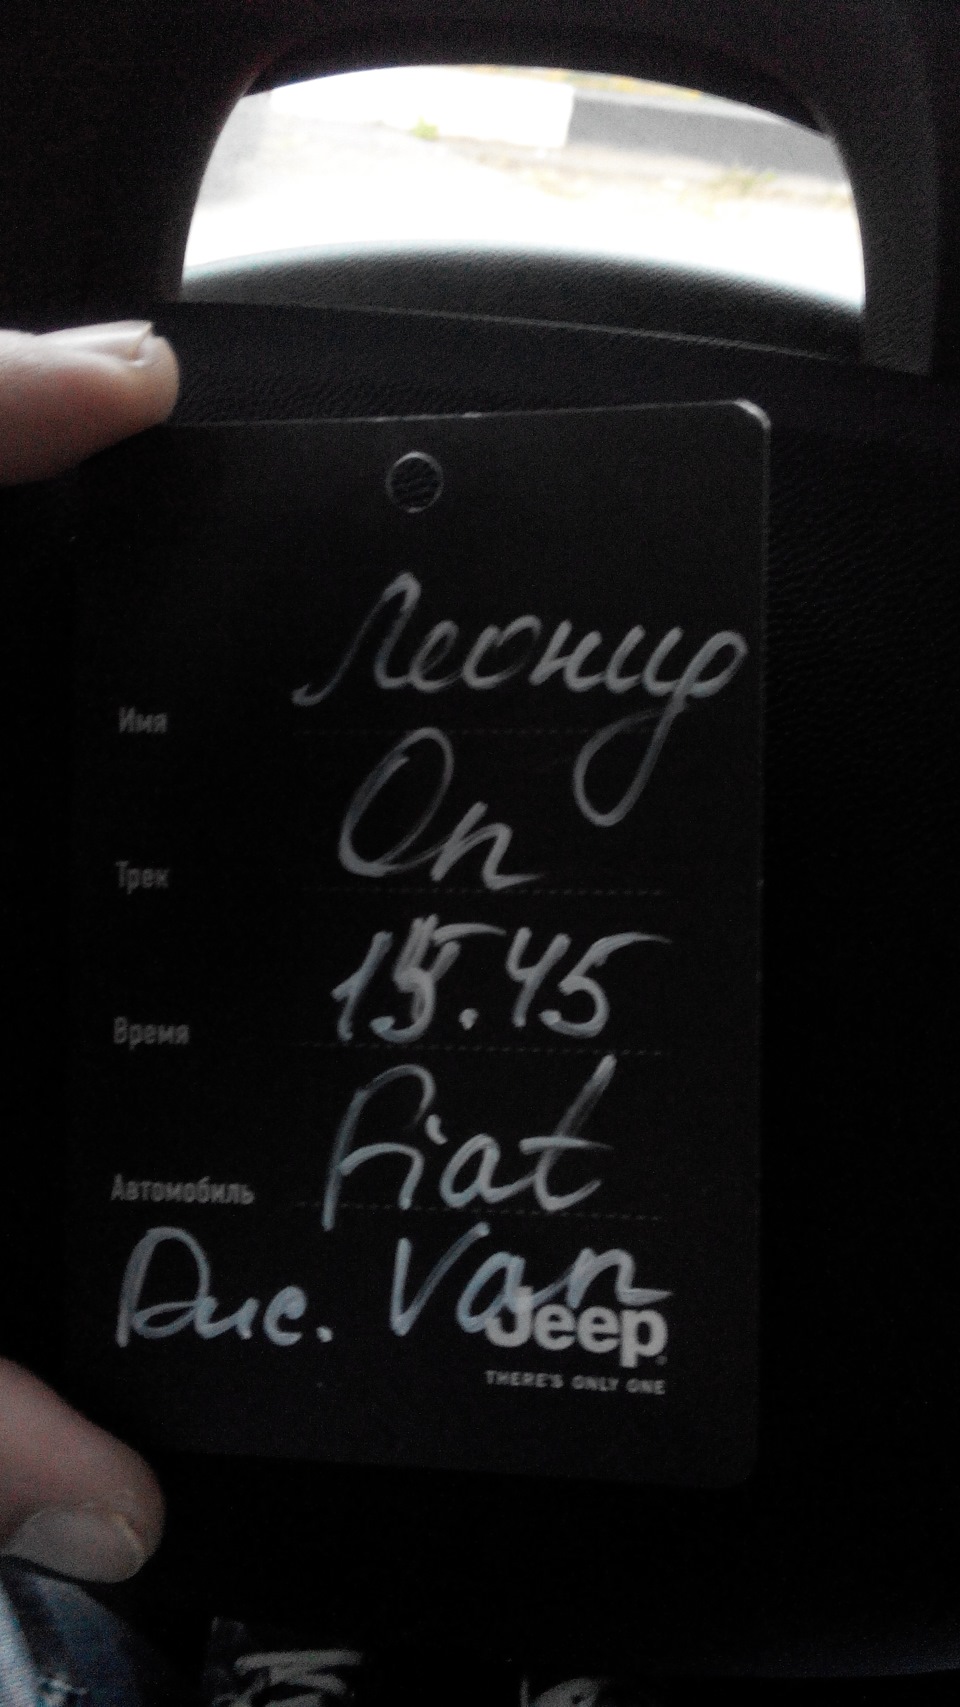 Имя Леонид
Трек On
Время 15.45
Автомобиль Fiat
Duc. Van
Jeep
THERE'S ONLY ONE